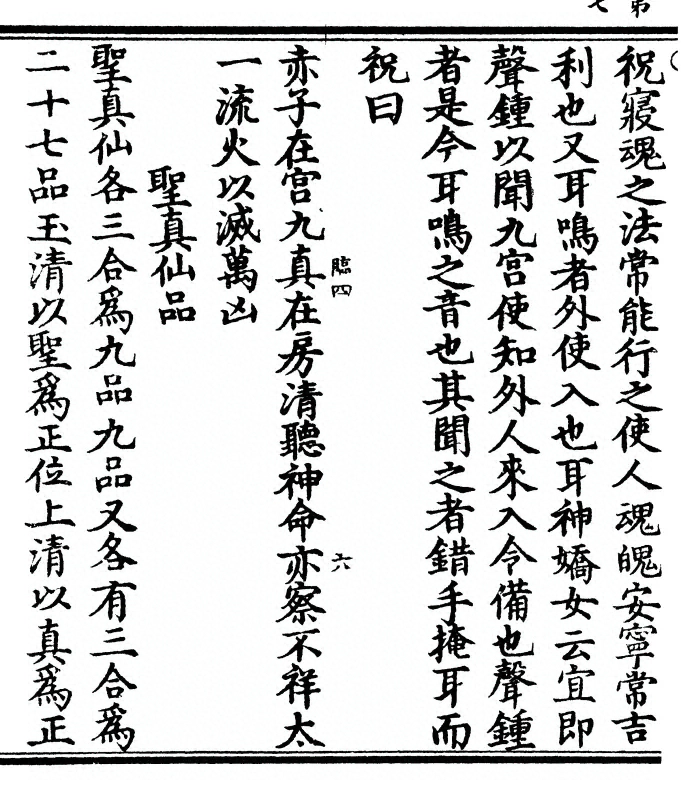 第
七
祝寢魂之法常能行之使人魂魄安寧常吉
利也又耳鳴者外使入也耳神嬌女云宜即
聲鍾以聞九宮使知外人來入令備也聲鍾
者是今耳鳴之音也其聞之者錯手掩耳而
祝曰
臨四
六
赤子在宮九真在房清聽神命亦察不祥太
一流火以滅萬凶
聖真仙品
聖真仙各三合爲九品九品又各有三合爲
二十七品玉清以聖爲正位上清以真爲正